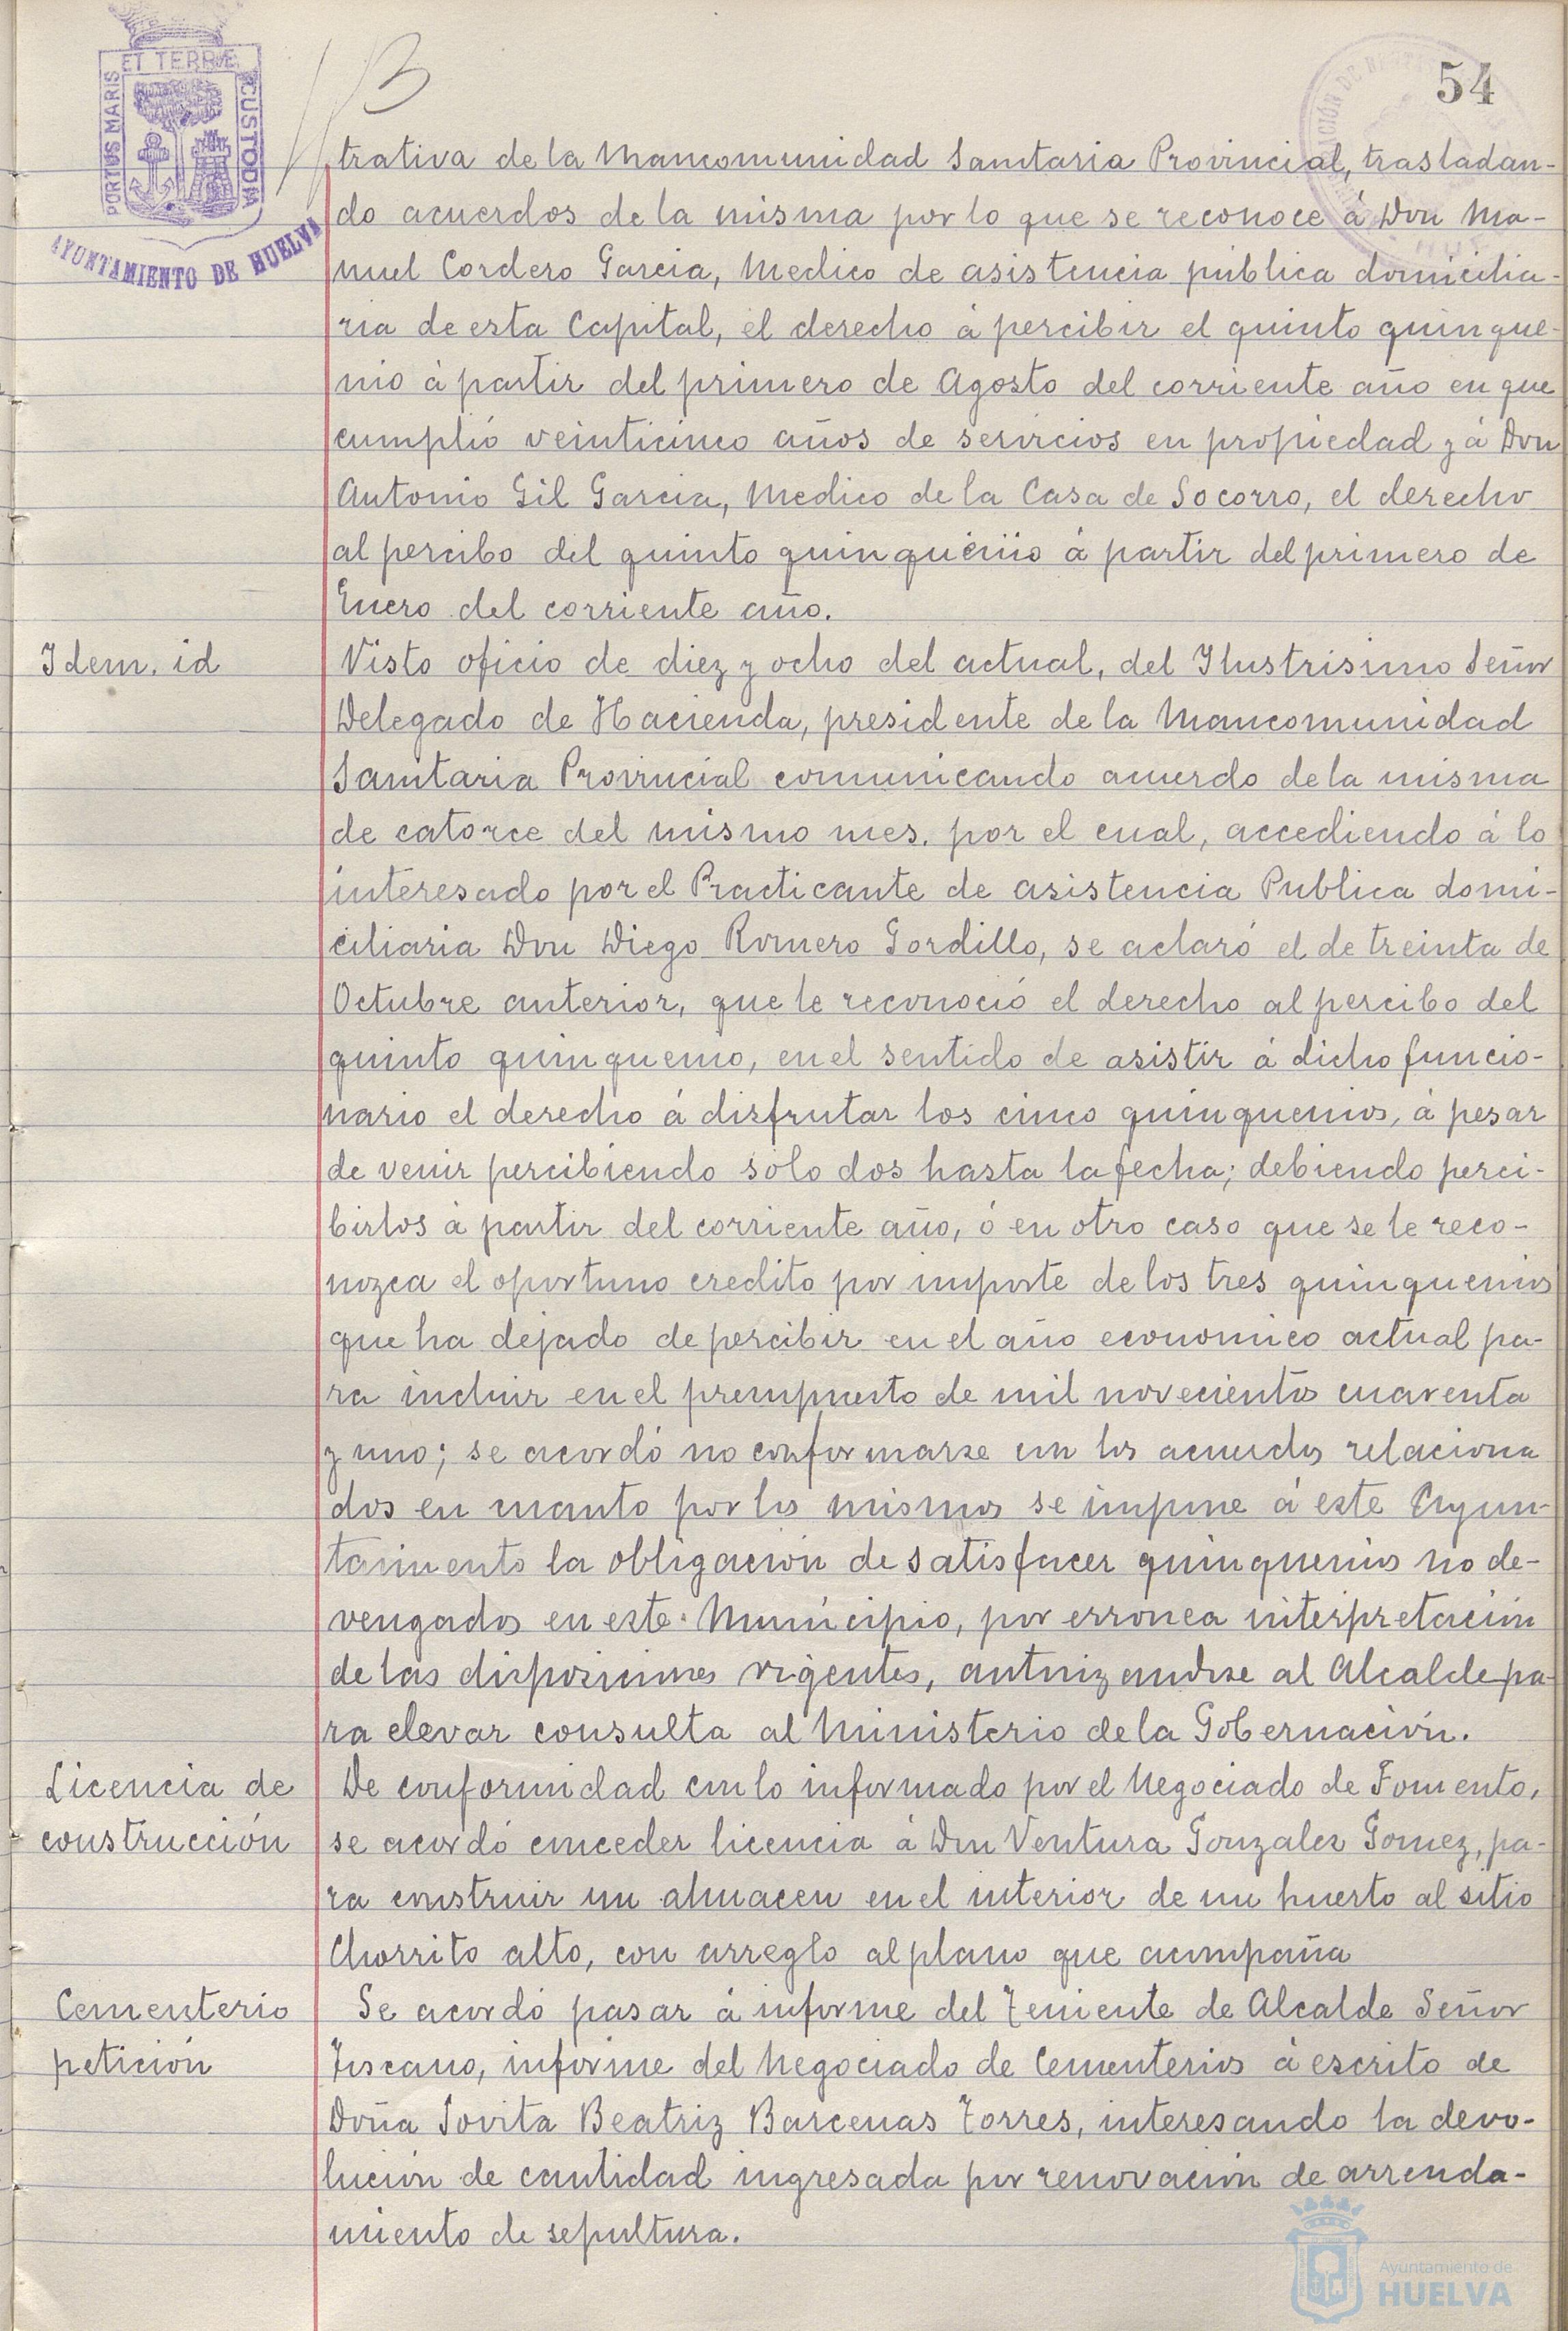 54
PORTUS MARIS ET TERRÆ CUSTODIA
AYUNTAMIENTO DE HUELVA
trativa de la Mancomunidad Sanitaria Provincial, trasladan-
do acuerdos de la misma por lo que se reconoce á Don Ma-
nuel Cordero Garcia, Medico de asistencia pública domicilia-
ria de esta Capital, el derecho á percibir el quinto quinque-
nio á partir del primero de Agosto del corriente año en que
cumplió veinticinco años de servicios en propiedad y á Don
Antonio Gil Garcia, Medico de la Casa de Socorro, el derecho
al percibo del quinto quinquenio á partir del primero de
Enero del corriente año.
Idem. id
Visto oficio de diez y ocho del actual, del Ilustrisimo Señor
Delegado de Hacienda, presidente de la Mancomunidad
Sanitaria Provincial comunicando acuerdo de la misma
de catorce del mismo mes, por el cual, accediendo á lo
interesado por el Practicante de asistencia Publica domi-
ciliaria Don Diego Romero Gordillo, se aclaró el de treinta de
Octubre anterior, que le reconoció el derecho al percibo del
quinto quinquenio, en el sentido de asistir á dicho funcio-
nario el derecho á disfrutar los cinco quinquenios, á pesar
de venir percibiendo solo dos hasta la fecha; debiendo perci-
birlos á partir del corriente año, ó en otro caso que se le reco-
nozca el oportuno credito por importe de los tres quinquenios
que ha dejado de percibir en el año economico actual pa-
ra incluir en el presupuesto de mil novecientos cuarenta
y uno; se acordó no conformarse con los acuerdos relaciona
dos en cuanto por los mismos se impone á este Ayun-
tamiento la obligación de satisfacer quinquenios no de-
vengados en este Municipio, por erronea interpretación
de las disposiciones vigentes, autorizandose al Alcalde pa-
ra elevar consulta al Ministerio de la Gobernación.
Licencia de
construcción
De conformidad con lo informado por el Negociado de Fomento,
se acordó conceder licencia á Don Ventura Gonzalez Gomez, pa-
ra construir un almacen en el interior de un huerto al sitio
Chorrito alto, con arreglo al plano que acompaña
Cementerio
petición
Se acordó pasar á informe del Teniente de Alcalde Señor
Tiscano, informe del Negociado de Cementerios á escrito de
Doña Jovita Beatriz Barcenas Torres, interesando la devo-
lución de cantidad ingresada por renovación de arrenda-
miento de sepultura.
Ayuntamiento de
HUELVA